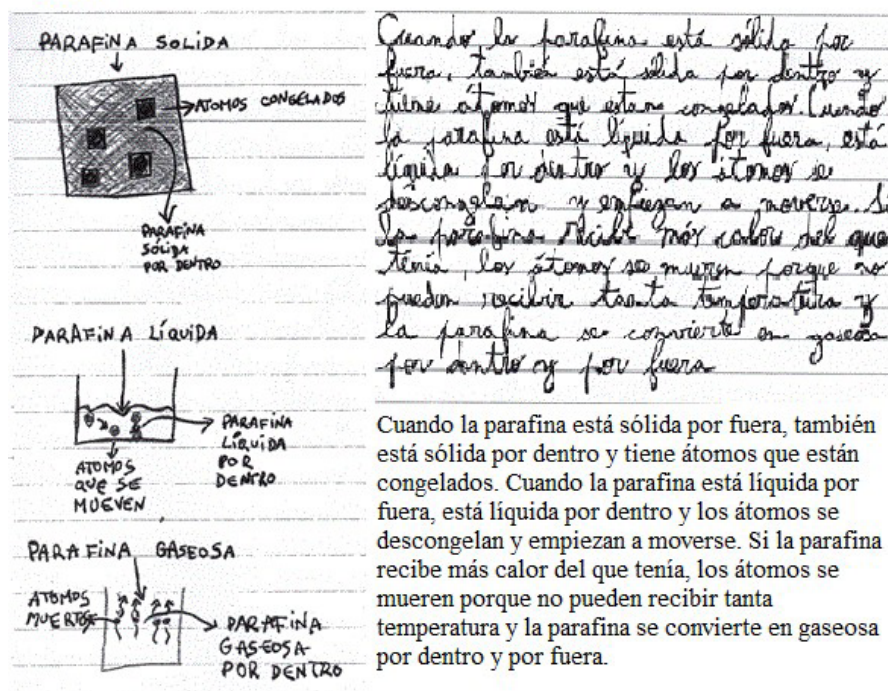 PARAFINA SOLIDA
ATOMOS CONGELADOS
PARAFINA
SÓLIDA
POR DENTRO
PARAFINA LÍQUIDA
PARAFINA
LÍQUIDA
POR
DENTRO
ATOMOS
QUE SE
MUEVEN
PARAFINA GASEOSA
ATOMOS
MUERTOS
PARAFINA
GASEOSA
POR DENTRO
Cuando la parafina está sólida por
fuera, también está sólida por dentro y
tiene átomos que estan congelados. Cuando
la parafina está líquida por fuera, está
líquida por dentro y los átomos se
descongelan y empiezan a moverse. Si
la parafina recibe más calor del que
tenía, los átomos se mueren porque no
pueden recibir tanta temperatura y
la parafina se convierte en gaseosa
por dentro y por fuera
Cuando la parafina está sólida por fuera, también
está sólida por dentro y tiene átomos que están
congelados. Cuando la parafina está líquida por
fuera, está líquida por dentro y los átomos se
descongelan y empiezan a moverse. Si la parafina
recibe más calor del que tenía, los átomos se
mueren porque no pueden recibir tanta
temperatura y la parafina se convierte en gaseosa
por dentro y por fuera.